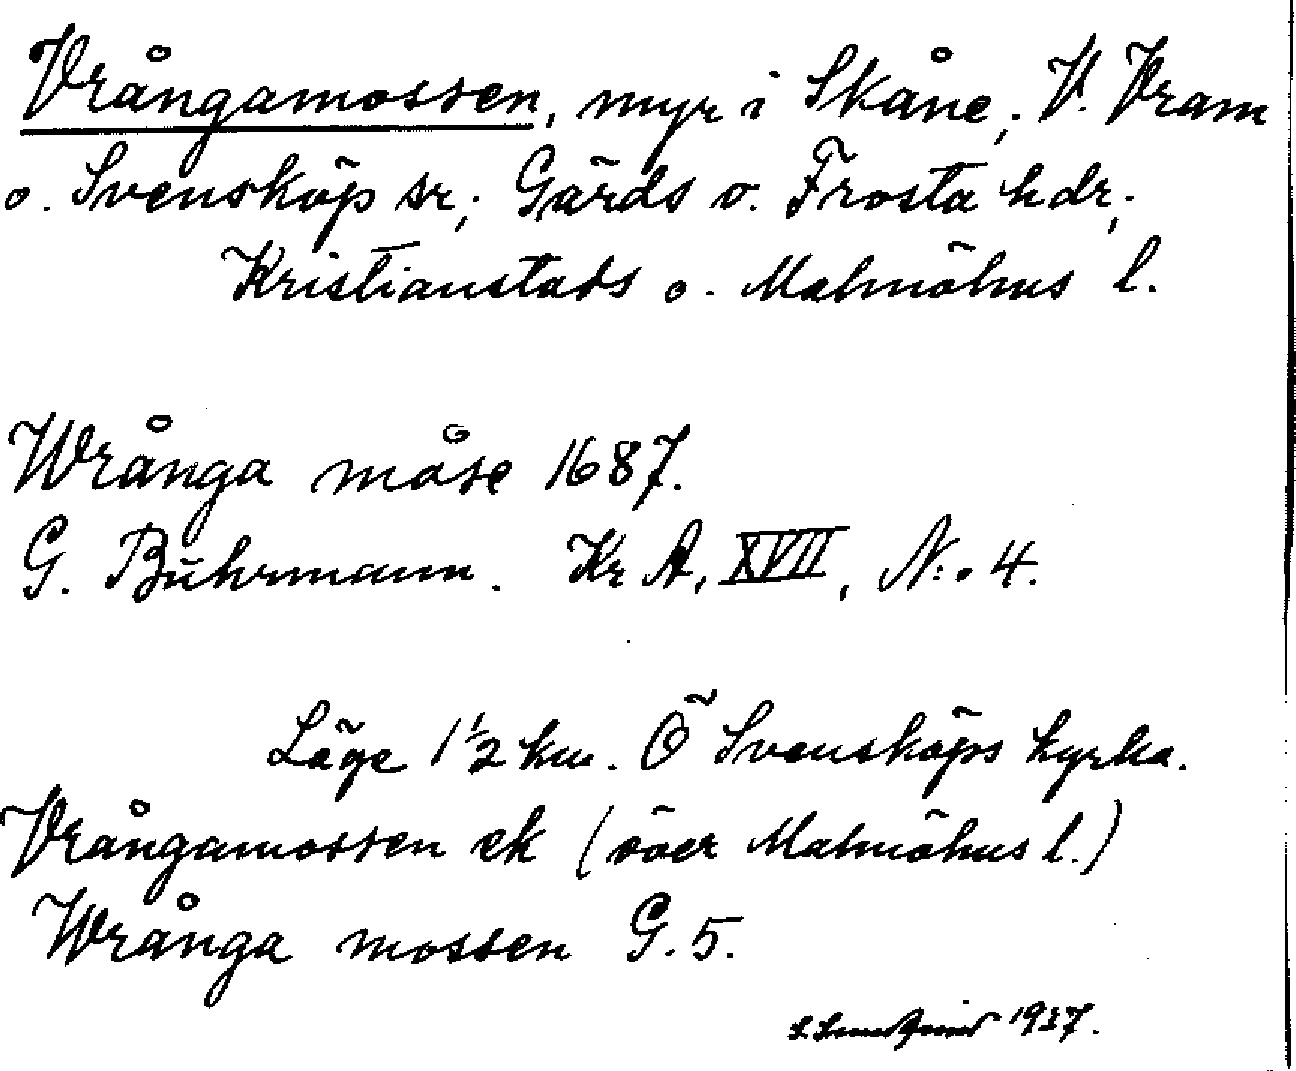 Vrångamossen, myr i Skåne; V. Vram
o. Svensköp sr; Gärds o. Frosta hdr;
Kristianstads o. Malmöhus l.
Wrånga måse 1687.
G. Buhrmann. Kr A, XVII, N:o 4.
Läge 1 1/2 km. Ö Svensköps kyrka.
Vrångamossen ek (över Malmöhus l.)
Wrånga mossen G. 5.
1937.